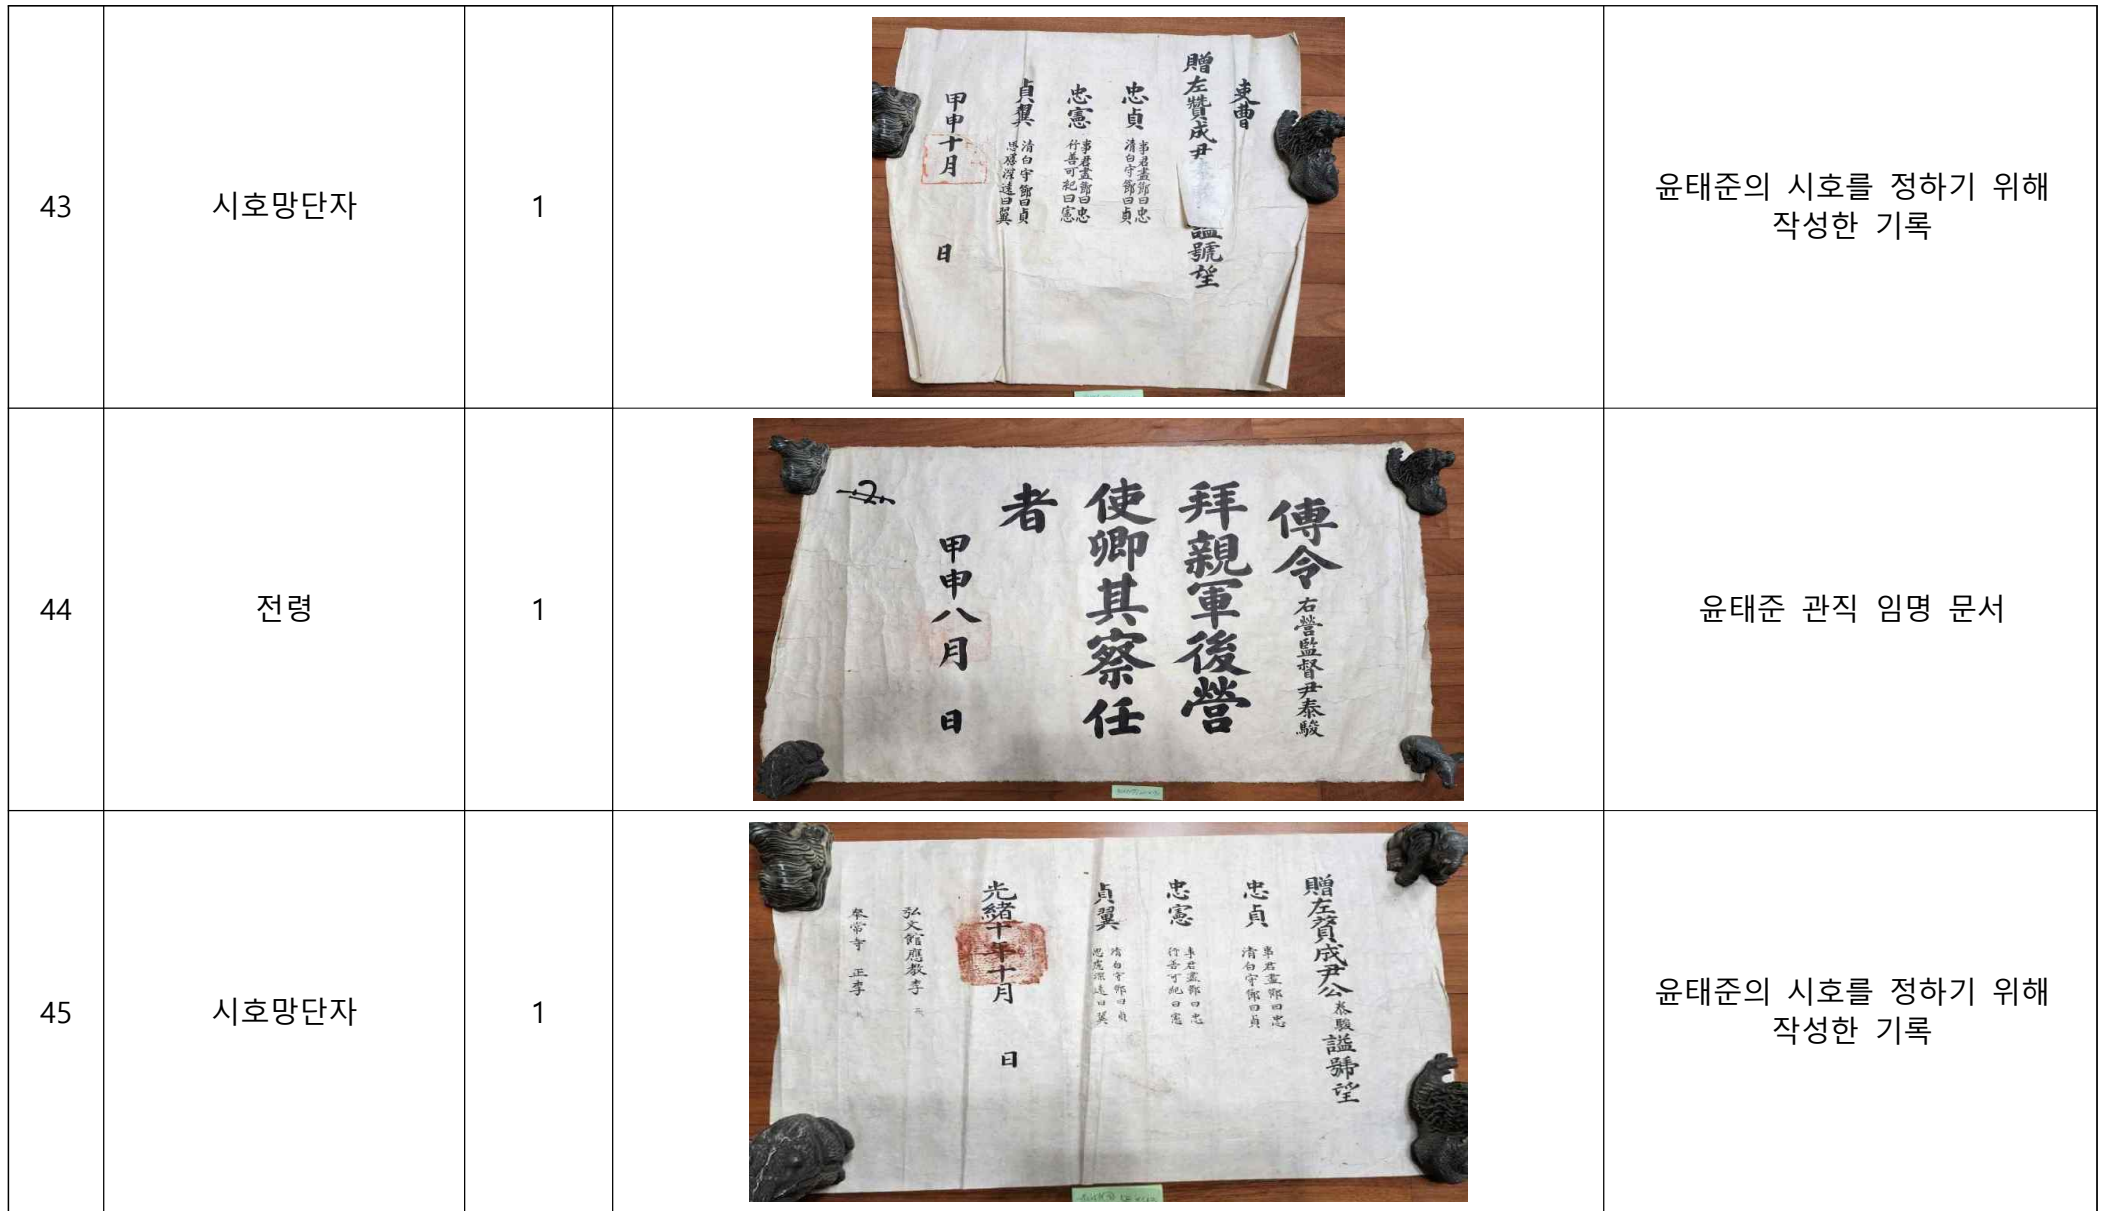 43
시호망단자
1
吏曹
贈左贊成尹
諡號望
忠貞
事君盡節曰忠
清白守節曰貞
忠憲
事君盡節曰忠
行善可紀曰憲
貞翼
清白守節曰貞
思慮深遠曰翼
甲申十月 日
윤태준의 시호를 정하기 위해
작성한 기록
44
전령
1
傳令 右營監督尹泰駿
拜親軍後營
使卿其察任
者
甲申八月 日
윤태준 관직 임명 문서
45
시호망단자
1
贈左贊成尹公泰駿諡號望
忠貞
事君盡節曰忠
清白守節曰貞
忠憲
事君盡節曰忠
行善可紀曰憲
貞翼
清白守節曰貞
思慮深遠曰翼
光緒十年十月 日
弘文館應教李
奉常寺 正李
윤태준의 시호를 정하기 위해
작성한 기록